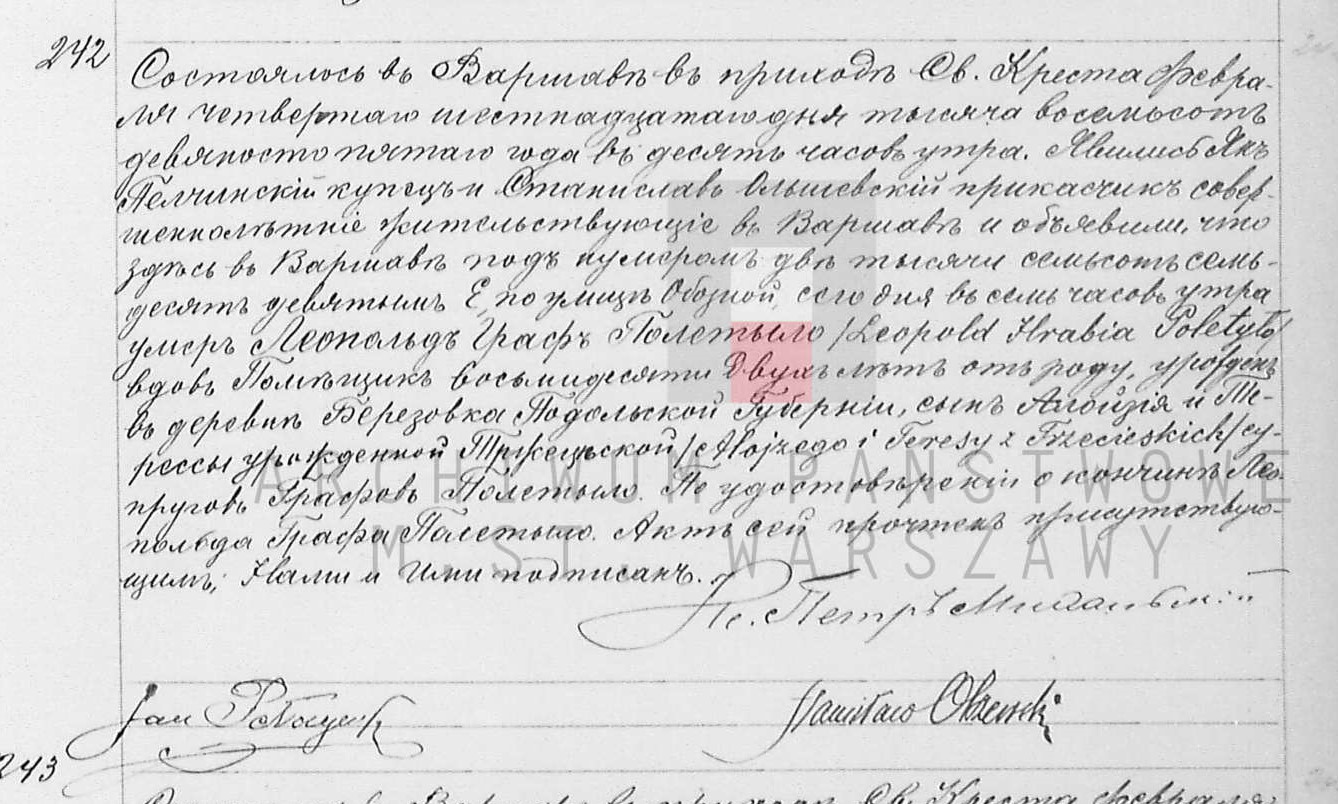 242
Состоялось въ Варшавѣ въ приходѣ Св. Креста Февра-
ля четвертаго шестнадцатаго дня тысяча восемьсотъ
девяносто пятаго года въ десять часовъ утра. Явились Янъ
Пелчинскій купецъ и Станиславъ Ольшевскій прикасчикъ совер-
шеннолѣтніе жительствующіе въ Варшавѣ и объявили, что
здѣсь въ Варшавѣ подъ нумеромъ двѣ тысячи семьсотъ семь-
десятъ девятымъ Е, по улицѣ Обозной, сего дня въ семь часовъ утра
умеръ Леопольдъ Графъ Полетыло /Leopold Hrabia Poletyło/
вдовъ Помѣщикъ восьмидесяти двухъ лѣтъ отъ роду, урожденъ
въ деревнѣ Березовка Подольской Губерніи, сынъ Алойзія и Те-
рессы урожденной Тржецѣской /Alojzego i Teresy z Trzecieskich/ су-
пруговъ Графовъ Полетыло. По удостовѣреніи о кончинѣ Лео-
польда Графа Полетыло. Актъ сей прочтенъ присутствую-
щимъ, Нами и Ими подписанъ.
Кс. Петръ
Jan
Stanisław Olszewski
243
Св. Креста Февраля
ARCHIWUM PAŃSTWOWE
M. ST. WARSZAWY